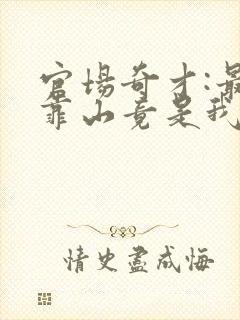 官场奇才:最
靠山竟是我
情史尽成悔